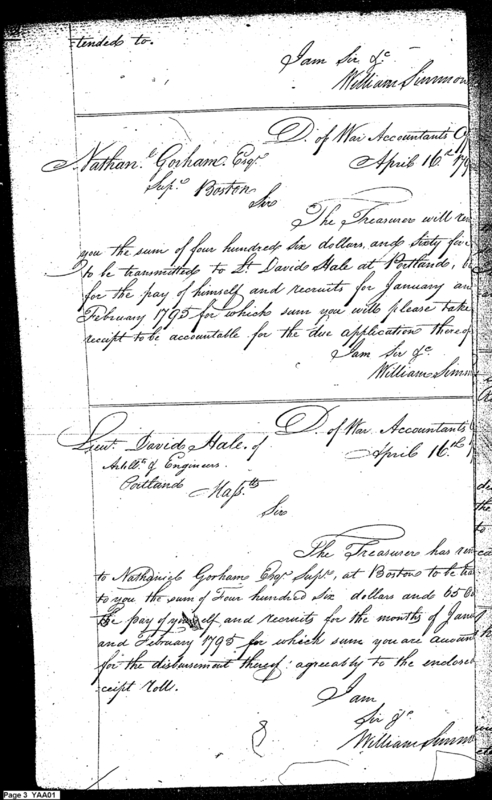 -tended to.
I am Sir &c
William Simmon
D. of War Accountants Of
April 16th 179
Nathanl Gorham Esqr
Supr Boston
Sir
The Treasurer will rem
you the sum of four hundred six dollars, and sixty five
to be transmitted to Lt. David Hale at Portland,
for the pay of himself and recruits for January an
February 1795 for which sum you will please take
receipt to be accountable for the due application thereof
I am Sir &c
William Simm
D. of War Accountants
April 16th
Lieut. David Hale of
Artilly & Engineers
Portland Massts
Sir
The Treasurer has rem
to Nathaniel Gorham Esqr Supr, at Boston to be tra
to you the sum of Four hundred Six dollars and 65 Ce
the pay of yourself and recruits for the months of Janu
and February 1795 for which sum you are accoun
for the disbursement thereof agreeably to the endorsed
-ceipt roll.
I am
Sir &c
William Simmo
Page 3 YAA01